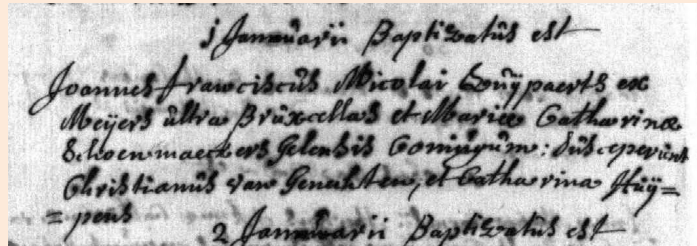 1 Januarii Baptizatus est
Joannes franciscus Nicolai Cuÿpaerts ex
Meÿers ultra Bruxellas et Mariæ Catharinæ
Schoenmaeckers Gelensis Conjugum: susceperunt
Christianus van Genechten, et Catharina Huÿ=
=pens
2 Januarii Baptizatus est